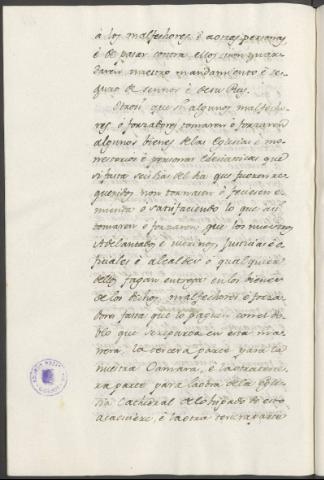 à los malfechores, è aotras personas,
è de pasar contra ellos sinon guar-
daren nuestro mandamiento è se-
guro de Señores è de su Rey.
Otrosi que si algunos malfecho-
res ò forzadores tomaren ò forzaren
algunos bienes delas Eglesias è mo-
nesterios è personas eclesiasticas que
si fasta seis dias del dia que fueren re-
queridos non tornaren ò ficieren e-
mienda ò satisfaciendo lo que asi
tomaron ò forzaron, que los nuestros
Adelantados è merinos, Justicias è o-
ficiales è alcaldes ò qualquiera
dellos fagan entrega en los bienes
de los dichos malfechores è forza-
dores fasta que lo paguen con el do-
blo que se reparta en esta ma-
nera, la tercera parte para la
nuestra Camara, è la otra terce-
ra parte para la obra de la Egle-
sia Cathedral del obispado do esto
acaesciere, è la otra tercera parte